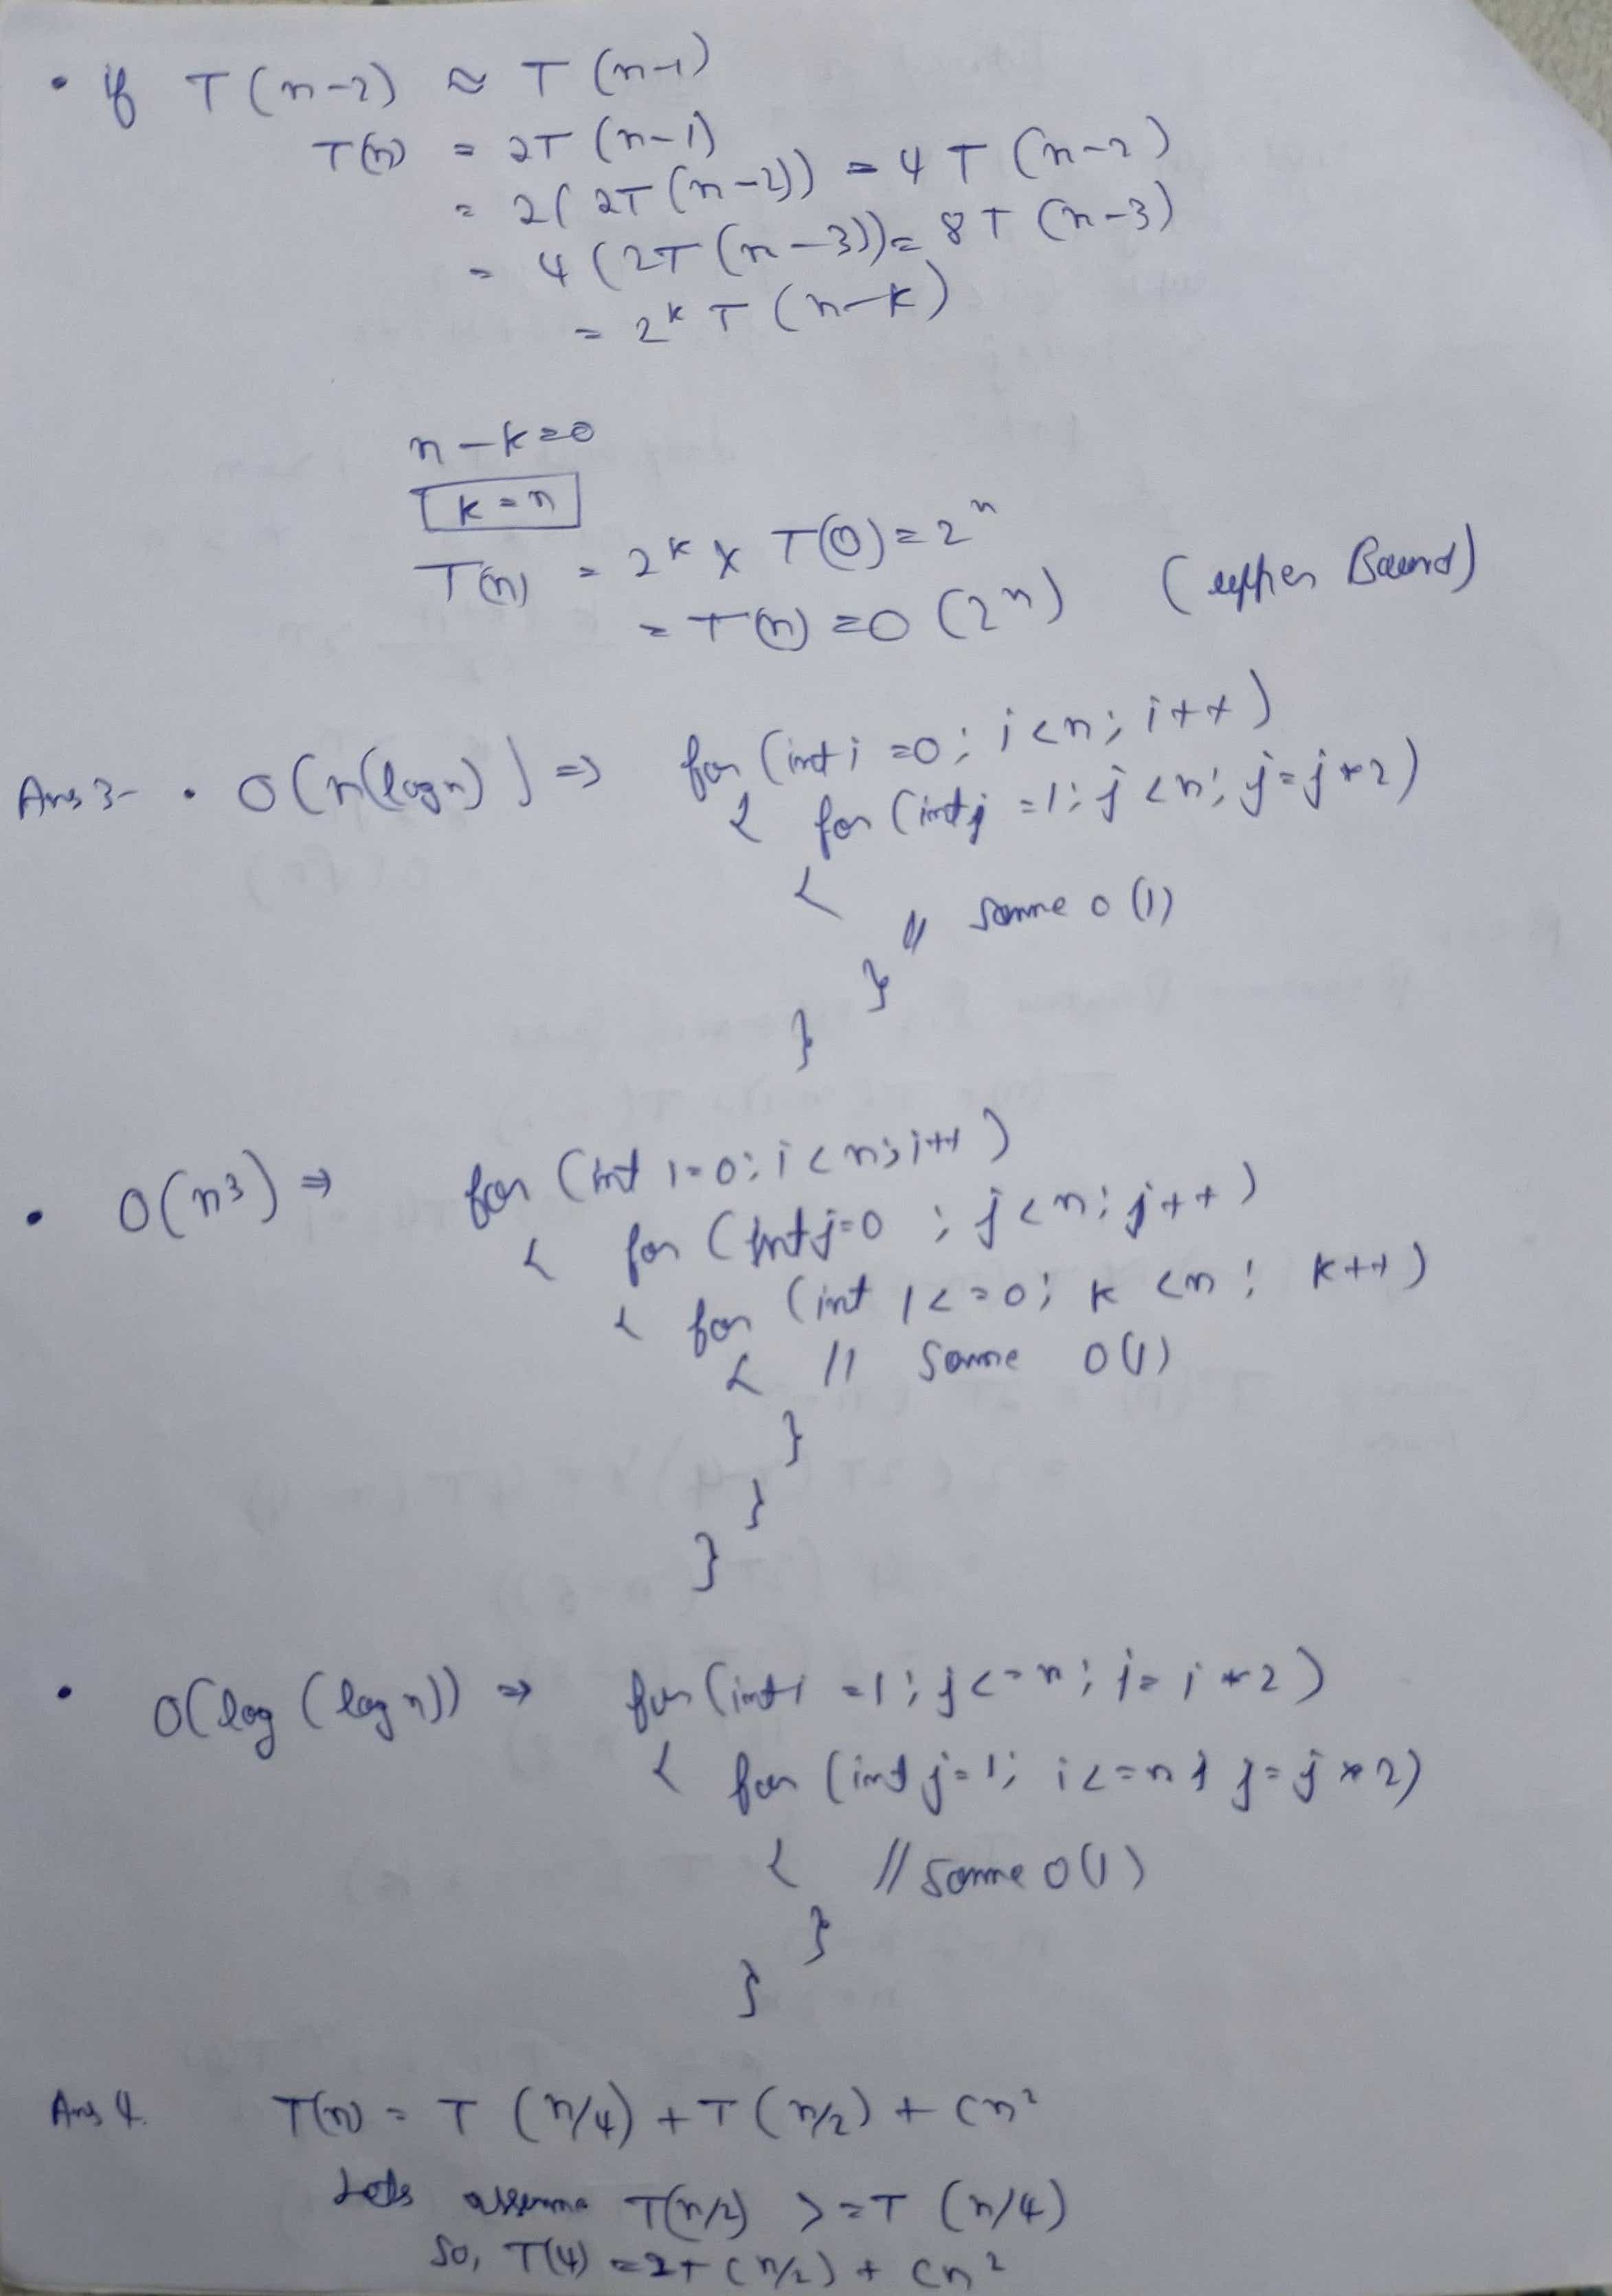 • if T(n-2) ≈ T(n-1)
T(n) = 2T(n-1)
= 2(2T(n-2)) = 4T(n-2)
= 4(2T(n-3)) = 8T(n-3)
= 2^k T(n-k)
n-k=0
k=n
T(n) = 2^k x T(0) = 2^n
= T(n) = O(2^n) (upper Bound)
Ans 3- • O(n(logn)) => for (int i=0; i<n; i++)
{ for (int j=1; j<n; j=j*2)
{
// some O(1)
}
}
• O(n^3) => for (int i=0; i<n; i++)
{ for (int j=0; j<n; j++)
{ for (int k=0; k<n; k++)
{ // some O(1)
}
}
}
• O(log(logn)) => for (int i=1; j<=n; j=j*2)
{ for (int j=1; i<=n; j=j*2)
{ // some O(1)
}
}
Ans 4. T(n) = T(n/4) + T(n/2) + Cn^2
Lets assume T(n/2) >= T(n/4)
So, T(4) = 2T(n/2) + cn^2